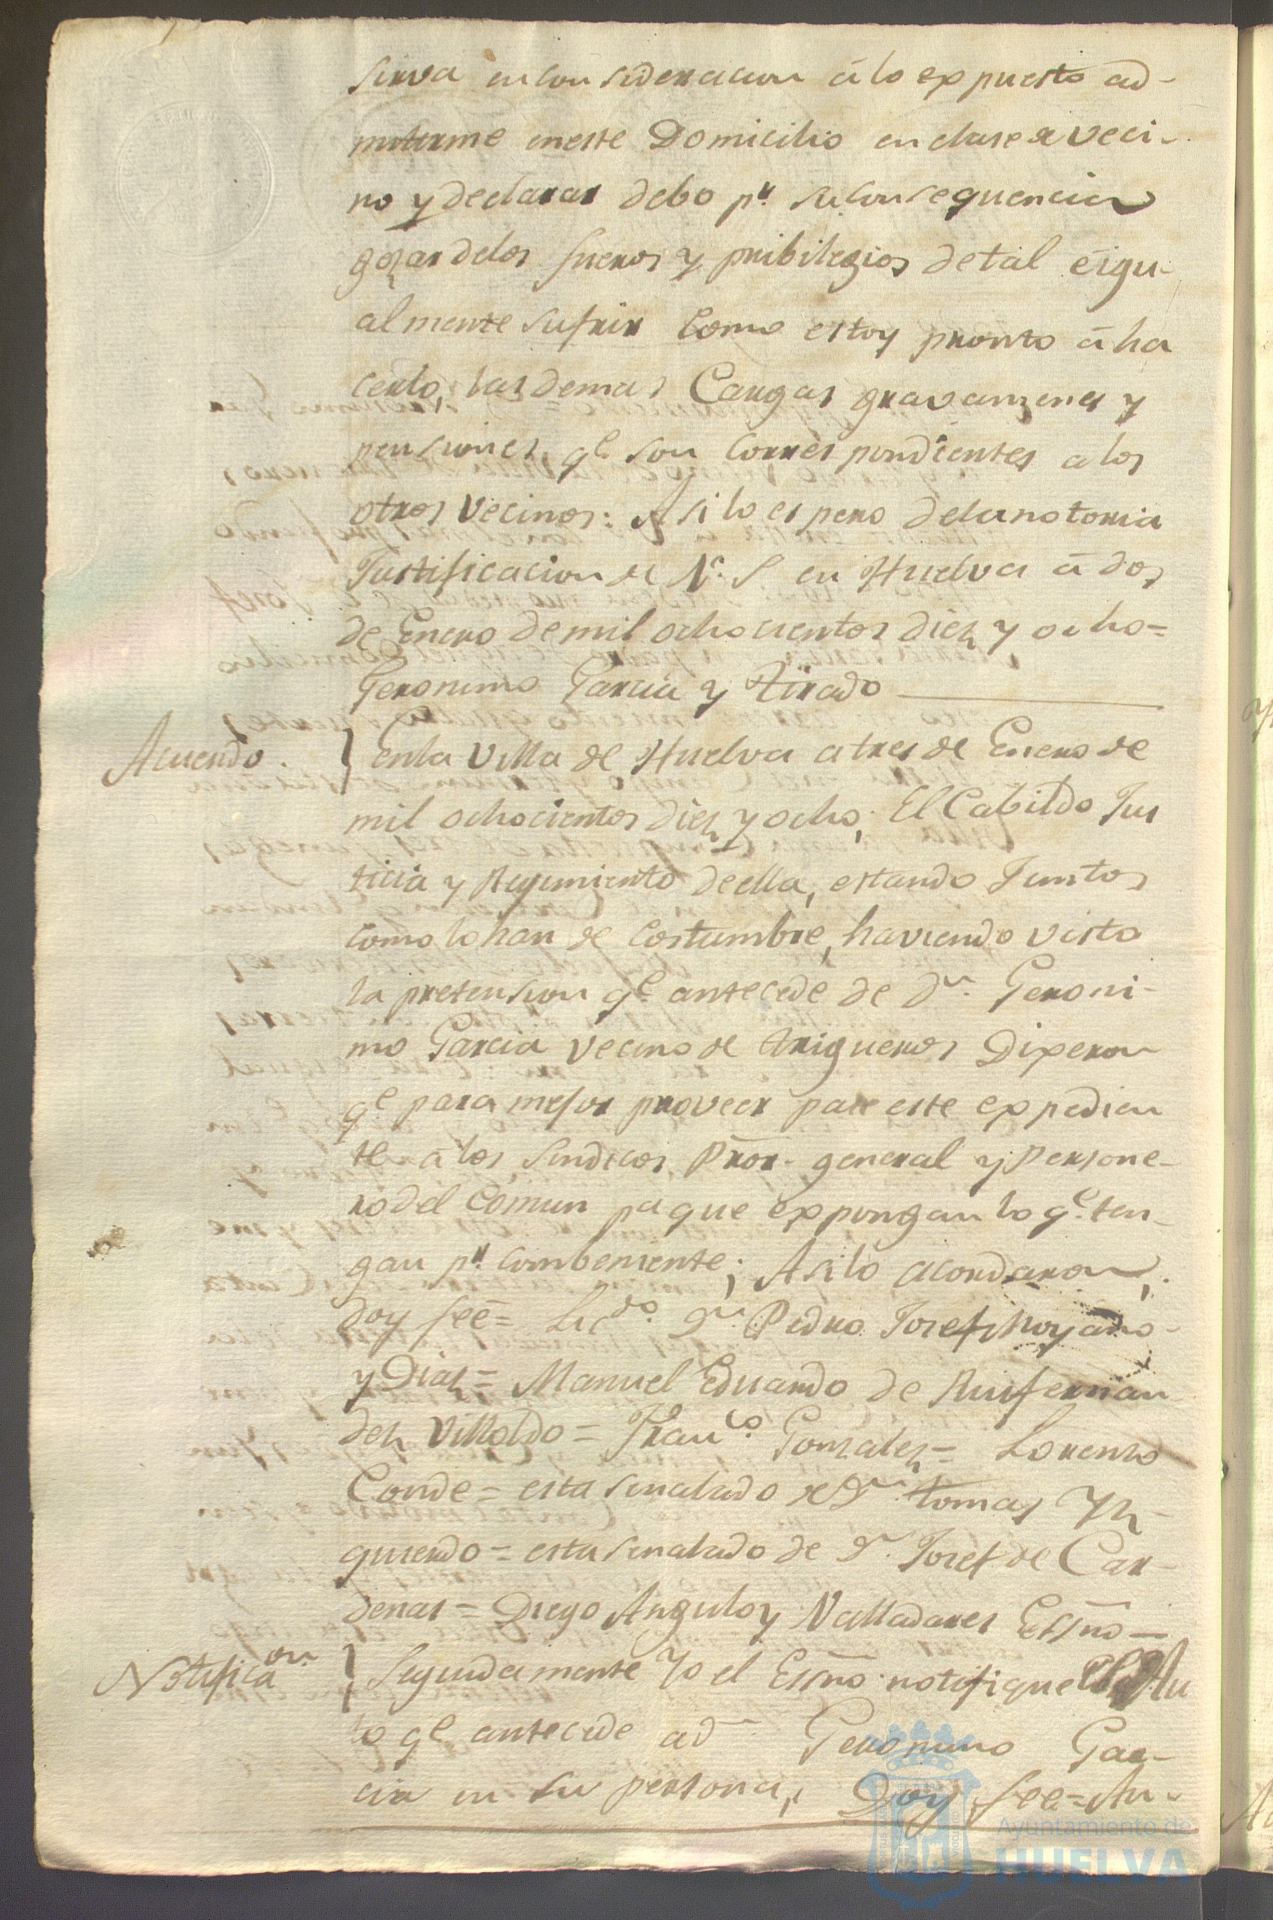 sirva en consideracion â lo expuesto ad-
mitirme eneste Domicilio en clase de veci-
no y declarar debo pr. su consequencia
gozar delos fueros y pribilegios detal è igu-
almente sufrir como estoy pronto â ha
cerlo, las demas Cargas gravamenes y
pensiones qe. son correspondientes a los
otros Vecinos: Asi lo espero dela notoria
Justificacion de V. S. en Huelva â dos
de Enero de mil ochocientos diez y ocho=
Geronimo Garcia y Tirado
Acuerdo. } enla Villa de Huelva a tres de Enero de
mil ochocientos diez y ocho; El Cabildo Jus
ticia y Regimiento de ella, estando Juntos
como lo han de Costumbre, haviendo visto
la pretension qe. antecede de dn. Geroni-
mo Garcia Vecino de trigueros Dixeron
qe. para mejor proveer pase este expedien
te â los sindicos Pror. general y Persone-
ro del Comun pa que expongan lo qe. ten-
gan pr. combeniente; Asi lo acordaron,
doy feê= Licdo. Dn. Pedro Josef Moyano
y Diaz= Manuel Eduardo de Ruifernan
dez Villoldo= Franco. Gonzalez= Lorenzo
Conde= esta senalado de Dn. tomas Yz-
quierdo= esta senalado de Dn. Josef de Car-
denas= Diego Angulo y Valladares Essno=
Notificaon. } Seguidamente Yo el Essno. notifique el Au
to qe. antecede a dn. Geronimo Gar-
cia en su persona, Doy fee= An-
Ayuntamiento de
HUELVA